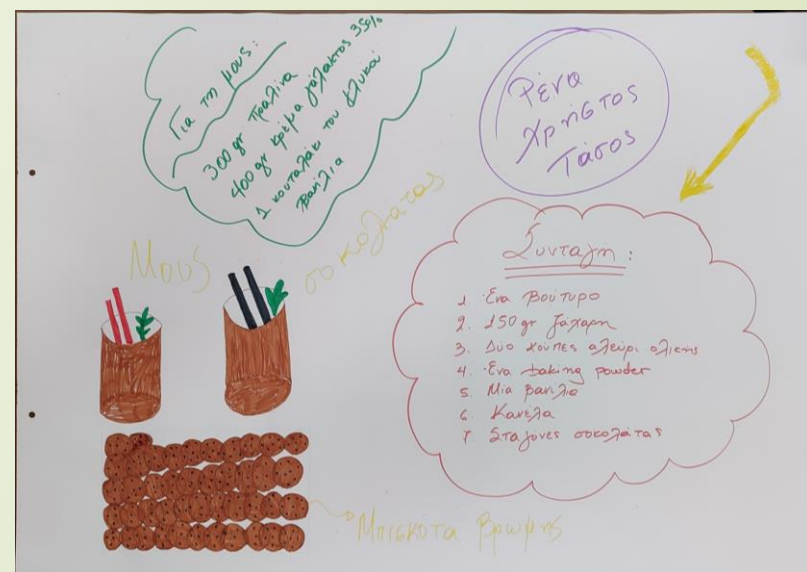 Για τη μους:
300 gr πραλίνα
400 gr κρέμα γάλακτος 35%
1 κουταλάκι του γλυκού
βανίλια
Ρένα
Χρήστος
Τάσος
Μους σοκολάτας
Συνταγή:
1. Ένα βούτυρο
2. 150 gr ζάχαρη
3. Δύο κούπες αλεύρι ολικής
4. Ένα baking powder
5. Μία βανίλια
6. Κανέλα
7. Σταγόνες σοκολάτας
Μπισκότα βρώμης